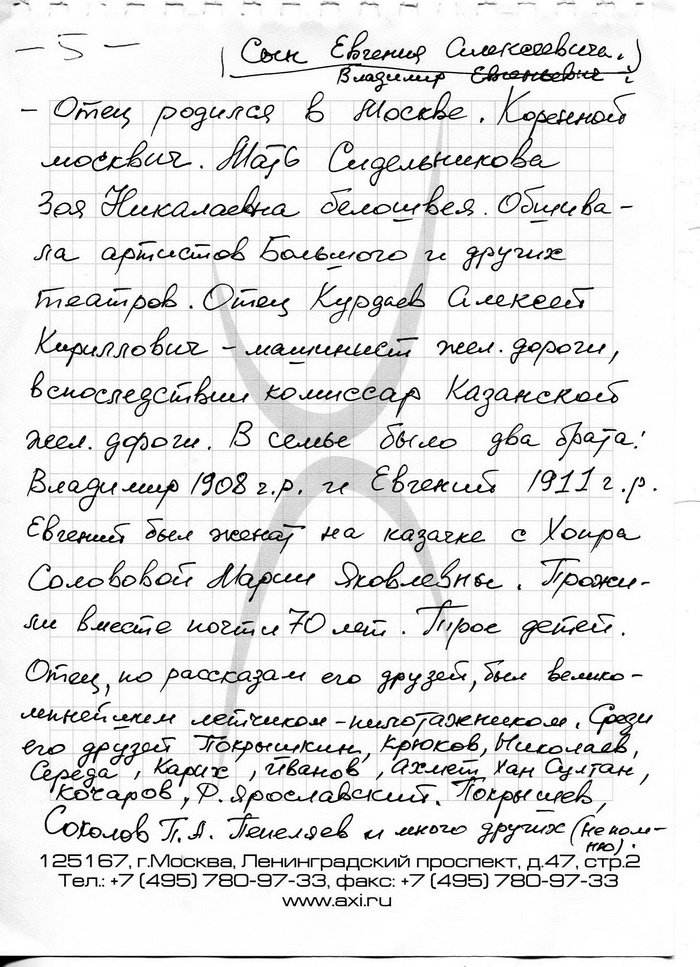 - 5 -
(Сын Евгения Алексеевича.)
Владимир Евгеньевич :
- Отец родился в Москве. Коренной
москвич. Мать Сидельникова
Зоя Никалаевна белошвея. Обшива-
ла артистов Большого и других
театров. Отец Курдаев Алексей
Кириллович - машинист жел. дороги,
вспоследствии комиссар Казанской
жел. дороги. В семье было два брата:
Владимир 1908 г.р. и Евгений 1911 г.р.
Евгений был женат на казачке с Хопра
Солововой Марии Яковлевны. Прожи-
ли вместе почти 70 лет. Трое детей.
Отец, по рассказам его друзей, был велико-
лепнейшим летчиком-пилотажником. Среди
его друзей Покрышкин, Крюков, Николаев,
Середа, Карих, Иванов, Ахмет Хан Султан,
Кочаров, Ф. Ярославский. Покрышев,
Соколов П.А. Пепеляев и много других (не пом-
ню).
125167, г.Москва, Ленинградский проспект, д.47, стр.2
Тел.: +7 (495) 780-97-33, факс: +7 (495) 780-97-33
www.axi.ru